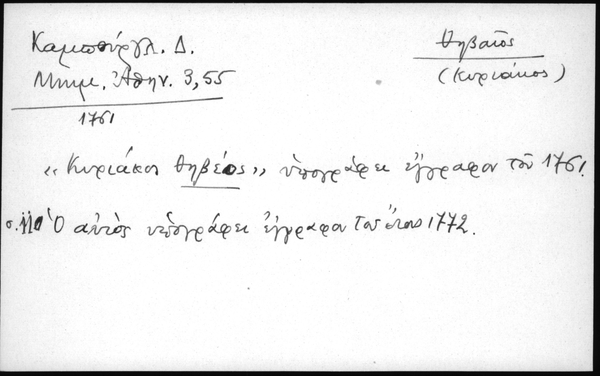 Καμπούργλ. Δ.
Μνημ. Ἀθην. 3,55
1761
Θηβαῖος
(Κυριάκος)
«Κυριάκος Θηβέος» ὑπογράφει ἔγγραφον τοῦ 1761.
σ. 110 Ὁ αὐτὸς ὑπογράφει ἔγγραφον τοῦ ἔτους 1772.